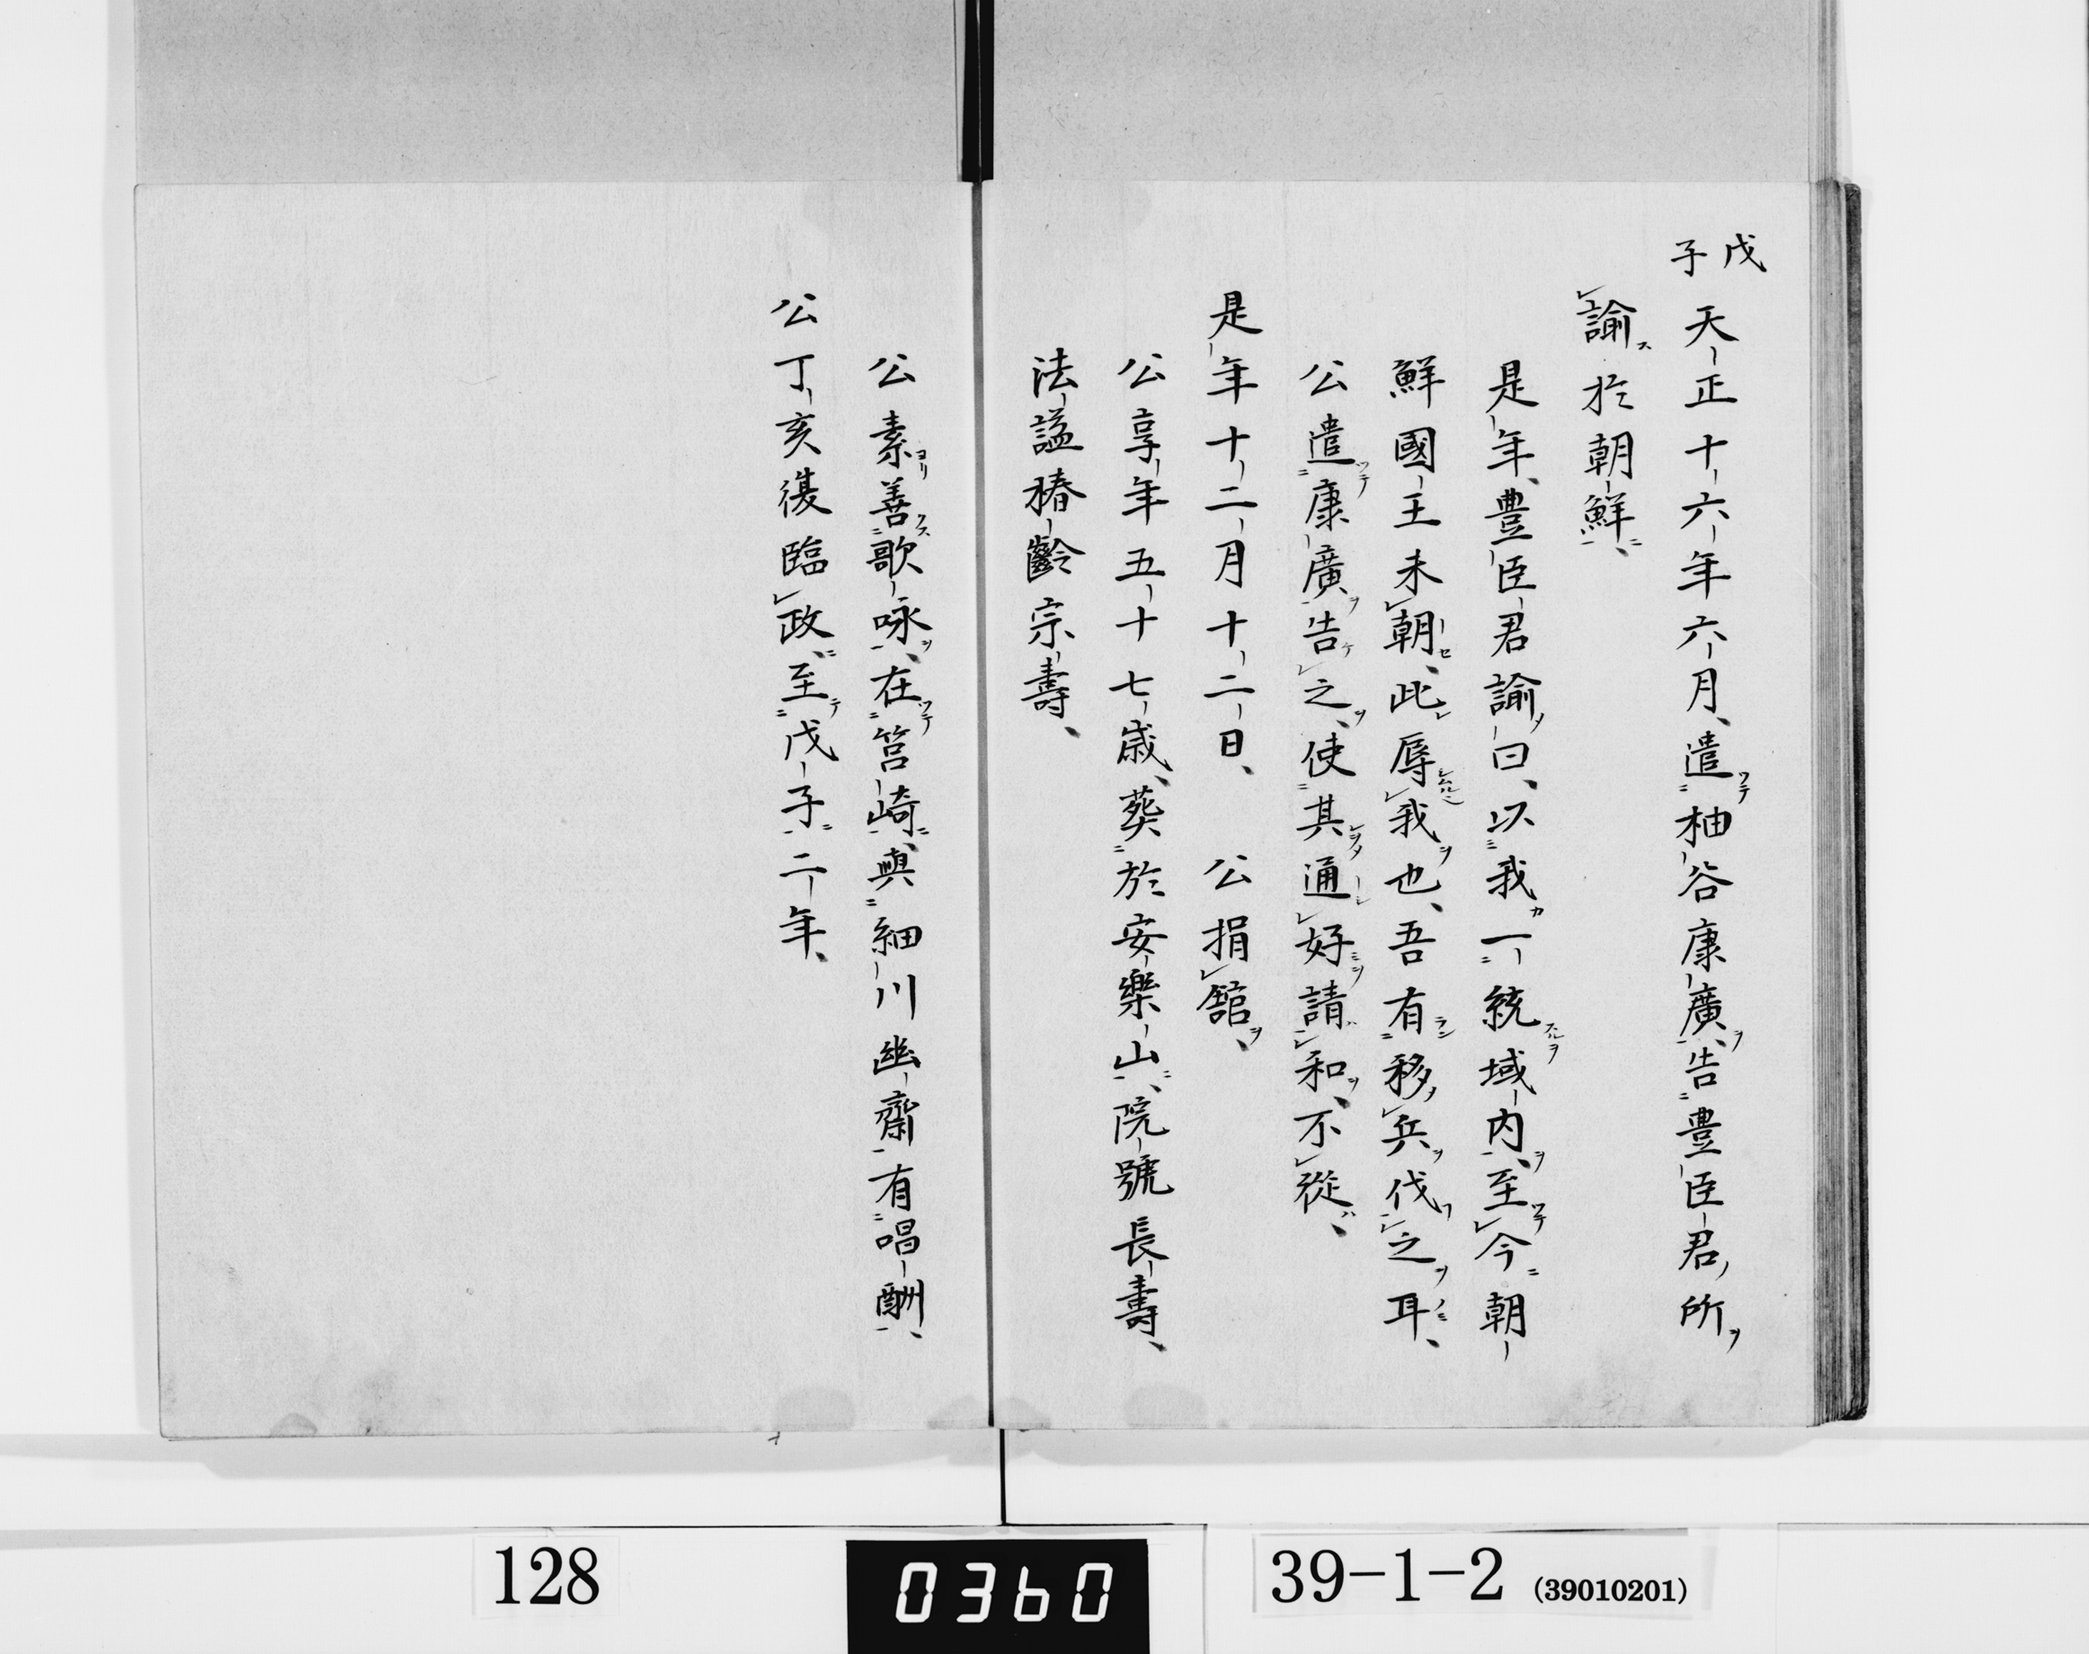 戊子
天正十六年六月、遣柚谷康廣、告豊臣君所
諭於朝鮮、
是年、豊臣君諭曰、以我一統域内、至今朝
鮮國王未朝、此辱我也、吾有移兵伐之耳、
公遣康廣告之、使其通好請和、不從、
是年十二月十二日、　公捐舘、
公享年五十七歳、葬於安樂山、院號長壽、
法謚椿齡宗壽、
公素善歌咏、在筥崎、與細川幽齋有唱酬、
公丁亥復臨政、至戊子二年、
128
0360
39-1-2 (39010201)